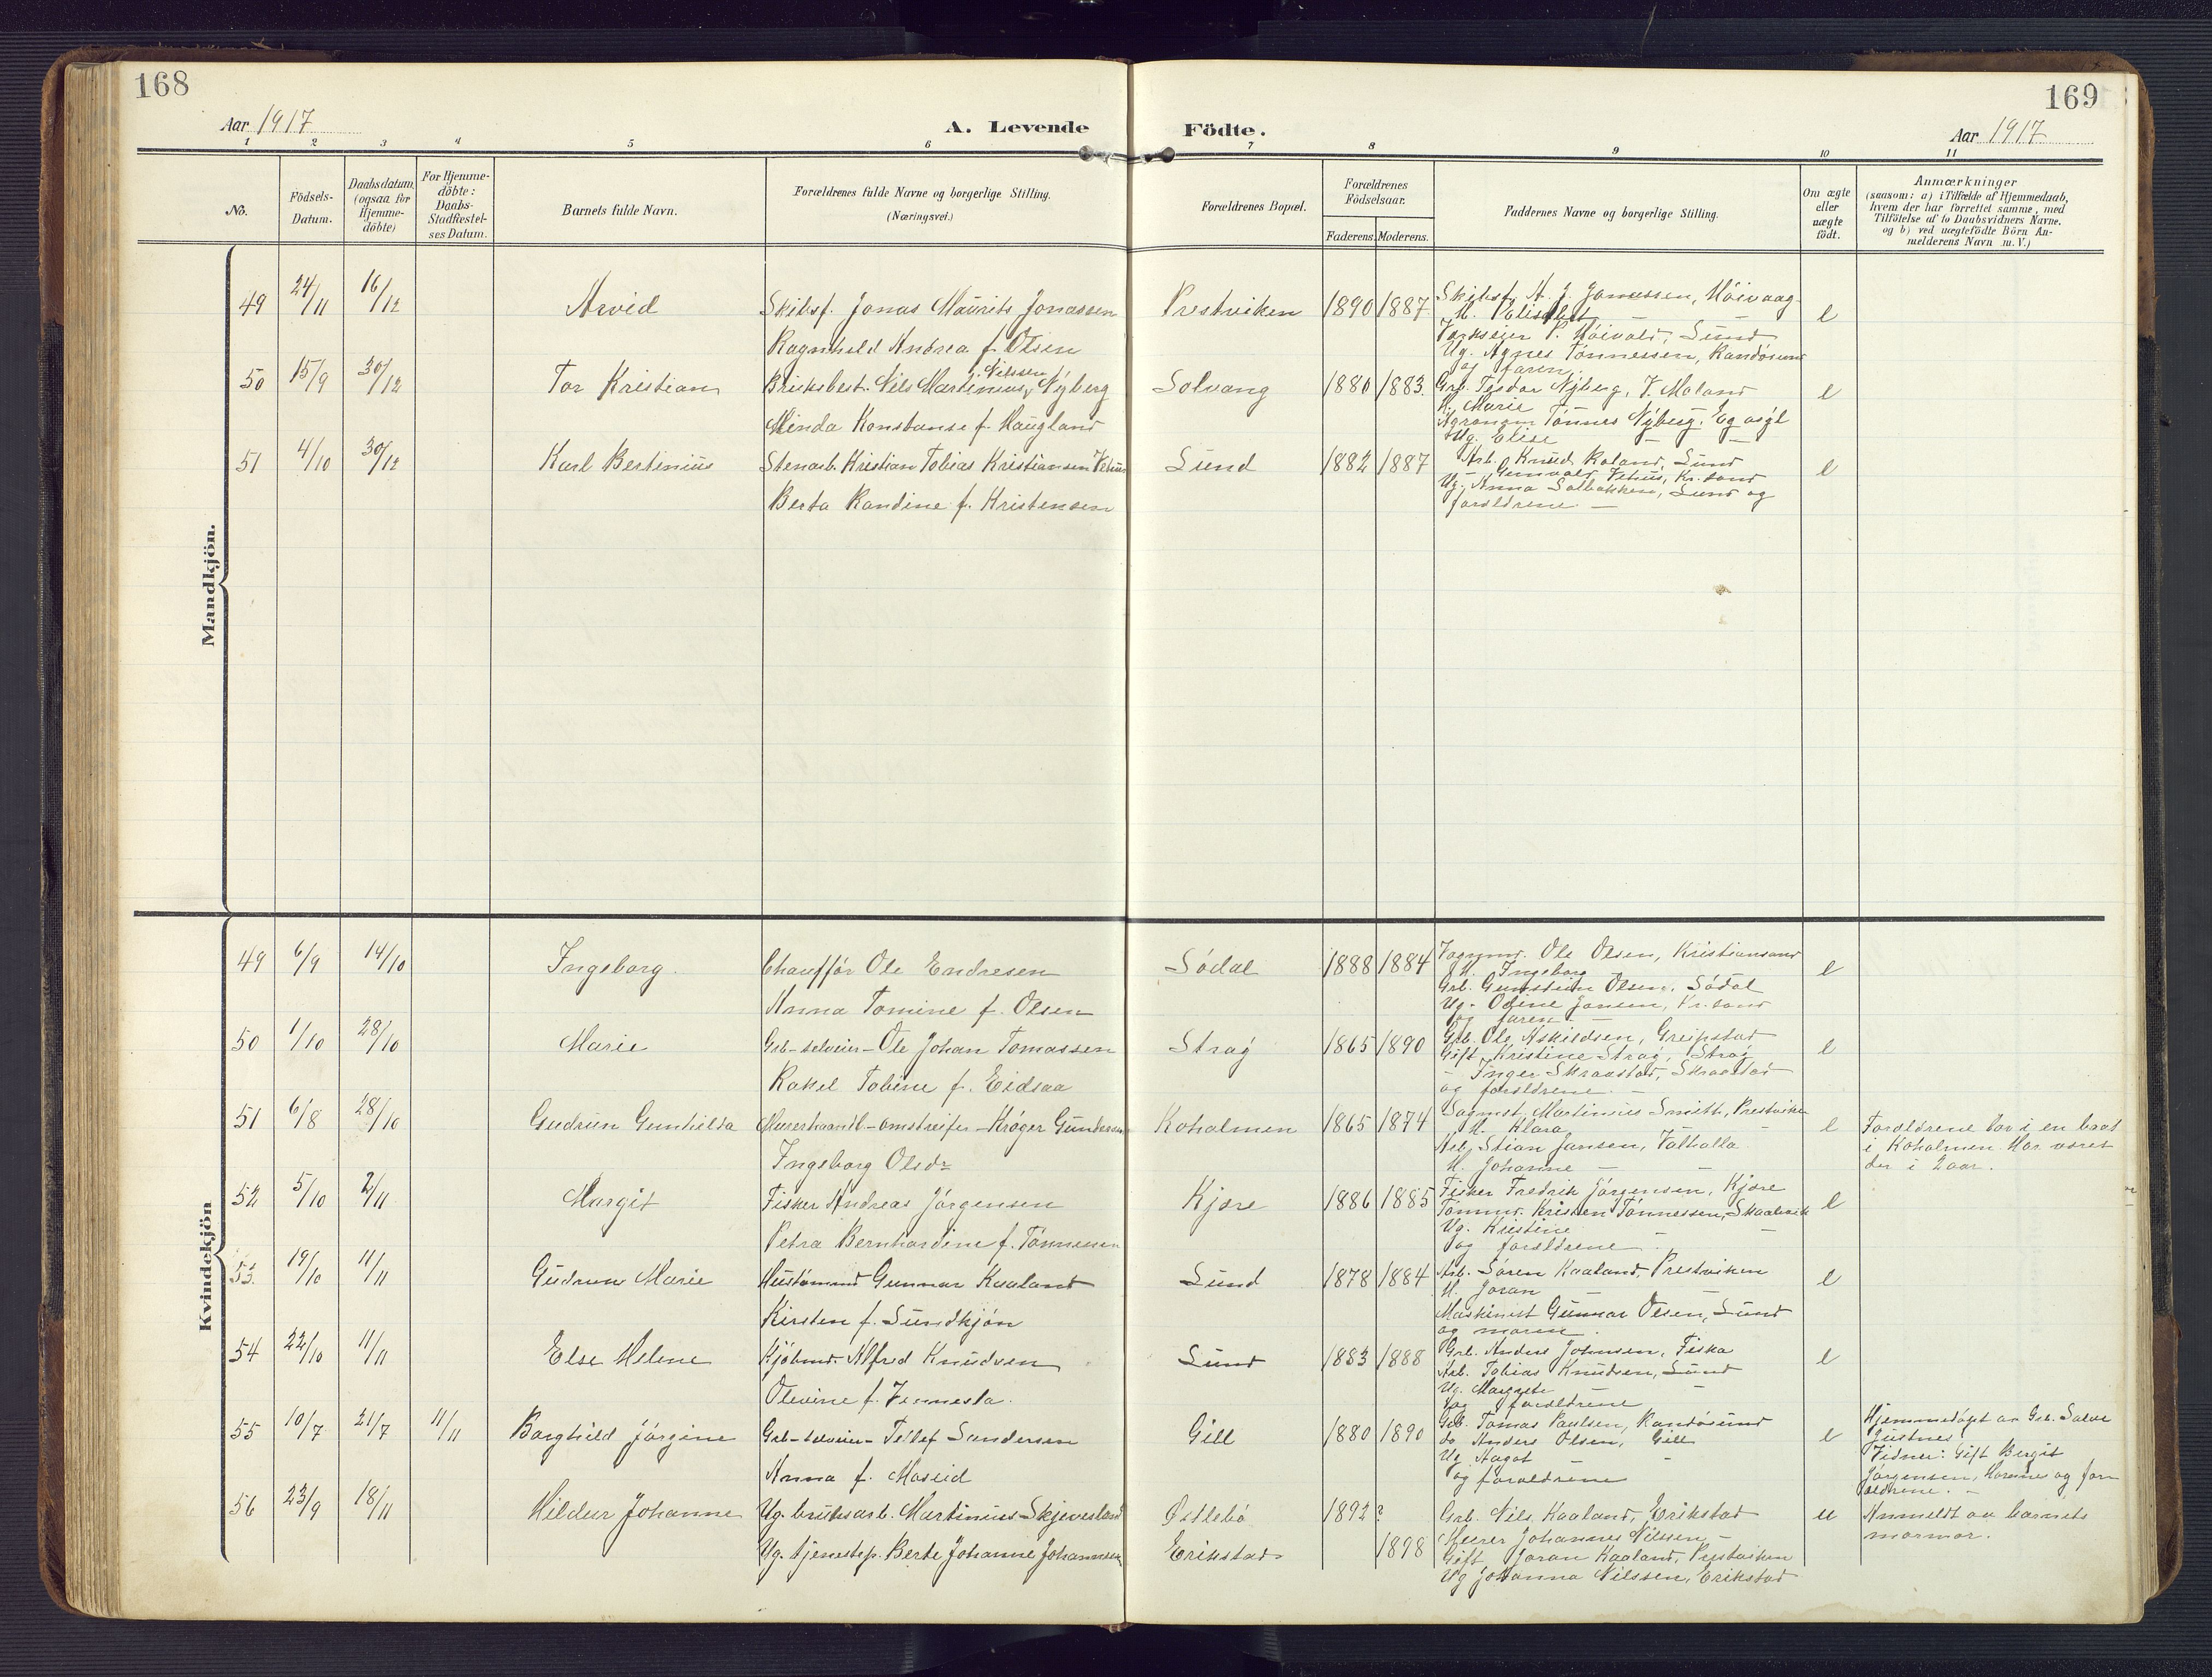 168
169
Aar 1917
A. Levende
Födte.
Aar 1917
1 2 3 4 5 6 7 8 9 10 11
No.
Födsels-
Datum.
Daabsdatum
(ogsaa for
Hjemme-
döbte)
For Hjemme-
döbte:
Daabs-
Stadfæstel-
ses Datum.
Barnets fulde Navn.
Forældrenes fulde Navne og borgerlige Stilling.
(Næringsvei.)
Forældrenes Bopæl.
Forældrenes
Födselsaar.
Faderens. Moderens.
Faddernes Navne og borgerlige Stilling.
Om ægte
eller
uægte
födt.
Anmærkninger
(saasom: a) i Tilfælde af Hjemmedaab,
hvem der har forrettet samme, med
Tilföielse af to Daabsvidners Navne.
og b) ved uægtefödte Börn An-
melderens Navn m. V.)
Mandkjön.
49 24/11 16/12 Arvid
Skibsf. Jonas Maurits Jonassen
Ragnhild Andrea f. Olsen
Prestviken 1890 1887
Skibsf. A. J. Jonassen, Höivaag
H. Elisabet —
P. Höivold, Sund
Ug. Agnes Tönnessen, Randösund
og faren.
e
50 15/9 30/12 Tor Kristian
Nilssen
Bruksbest. Nils Martinius Nyberg
Minda Konstanse f. Haugland
Solvang 1880 1883.
Grb. Teodor Nyberg, V. Moland
H. Marie
Agronom Tönnes Nyberg, Eg asyl
Ug. Elise — —
e
51 4/10 30/12 Karl Bertinius
Stenarb. Kristian Tobias Kristiansen Vehus
Berta Randine f. Kristensen
Sund 1882 1887
Arb. Knud Roland, Sund
Gunvald Vehus, Kr.sand
Ug. Anna Solbakken, Sund og
foreldrene —
e
Kvindekjön
49 6/9 14/10 Ingeborg.
Chaufför Ole Endresen
Anna Tomine f. Olsen
Södal 1888 1884
Vognmd. Ole Olsen, Kristiansand
H. Ingeborg —
Grb. Gunstein Olsen, Södal
Ug. Odine Jansen, Kr.sand
og faren —
e
50 1/10 28/10 Marie
Grb-selveier- Ole Johan Tomassen
Rakel Tobine f. Eidsaa
Straý 1865 1890
Grb. Ole Askildsen, Greipstad
Gift Kristine Straý, Straý
— Inger Skraastad, Skraastad
og foreldrene. —
e
51 6/8 28/10 Gudrun Gunhilda
Murerhaandt-omstreifer-Kröger Gundersen
Ingeborg Olsdr
Koholmen 1865 1874
Sagmst. Martinius Smith, Prestviken
H. Klara —
Arb. Stian Jansen, Valhalla
H. Johanne — —
e
Foreldrene bor i en baad
i Koholmen Har været
der i 2 aar.
52 5/10 2/11 Margit
Fisker Andreas Jörgensen
Petra Bernhardine f. Tönnessen
Kjære 1886 1885
Fisker Fredrik Jörgensen, Kjære
Tömmd. Kristen Tönnessen, Skaalevik
Ug. Kristine —
og foreldrene —
e
53. 19/10 11/11 Gudrun Marie
Hustömmd Gunnar Kaaland
Kirsten f. Sundkjön
Sund 1878 1884
Arb. Sören Kaaland, Prestviken
H. Joran — —
Maskinist Gunnar Olsen, Sund
og moren.
e
54 22/10 11/11 Else Helene
Kjöbmd. Alfred Knudsen
Olevine f. Vennesla.
Sund 1883 1888
Grb. Anders Johnsen, Fiska
Arb. Tobias Knudsen, Sund
Ug. Margrete — —
og foreldrene
e
55 10/7 21/7 11/11 Borghild Jörgine
Grb-selveier- Tellef Sandersen
Anna f. Moseid
Gill 1880 1890
Grb. Tomas Paulsen, Randösund
do Anders Olsen, Gill
Ug. Aagot —
og foreldrene
e
Hjemmedöpt av Grb. Salve
Justnes
Vidner: Gift Bergit
Jörgensen, og for
eldrene. —
56 23/9 18/11 Hildur Johanne
Ug. bruksarb. Martinius Skjevesland
Ug. tjenestep. Berte Johanne Johannessen
Östlebö 1892?
Erikstad 1898
Grb. Nils Kaaland, Erikstad
Murer Johannes Nilssen, —
Gift Joran Kaaland, Prestviken
Ug Johanna Nilssen, Erikstad
u
Anmeldt av barnets
mormor.